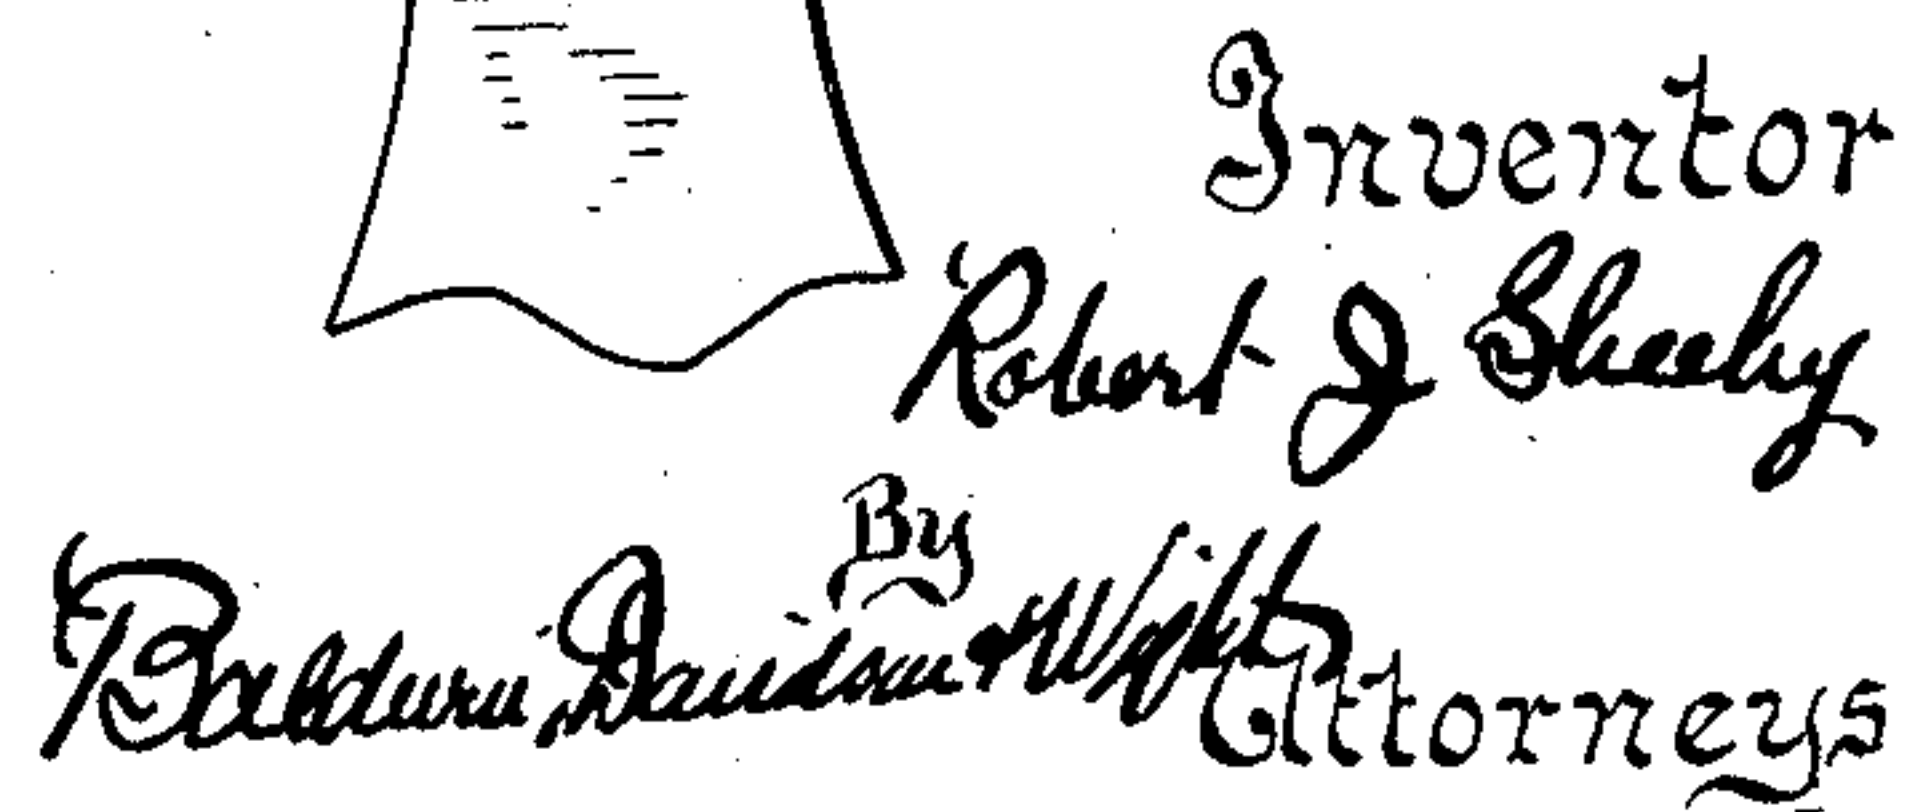 Inventor
Robert J Sheehy
By
Baldwin, Davidson & Wight
Attorneys